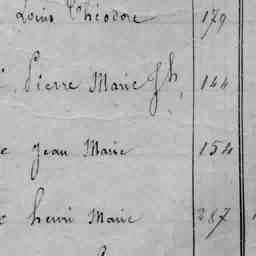 Louis Théodore 179
Pierre Marie Jh 144
Jean Marie 154
henri Marie 287